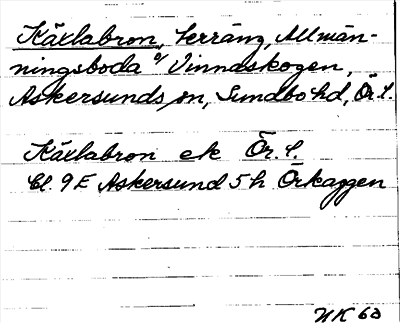 Käxlabron, terräng, Allmän-
ningsboda o/ Vinnaskogen,
Askersunds sn, Sundbo hd, Ör. l.
Käxlabron ek Ör. l.
Bl. 9 E Askersund 5 h Örkaggen
NK 60